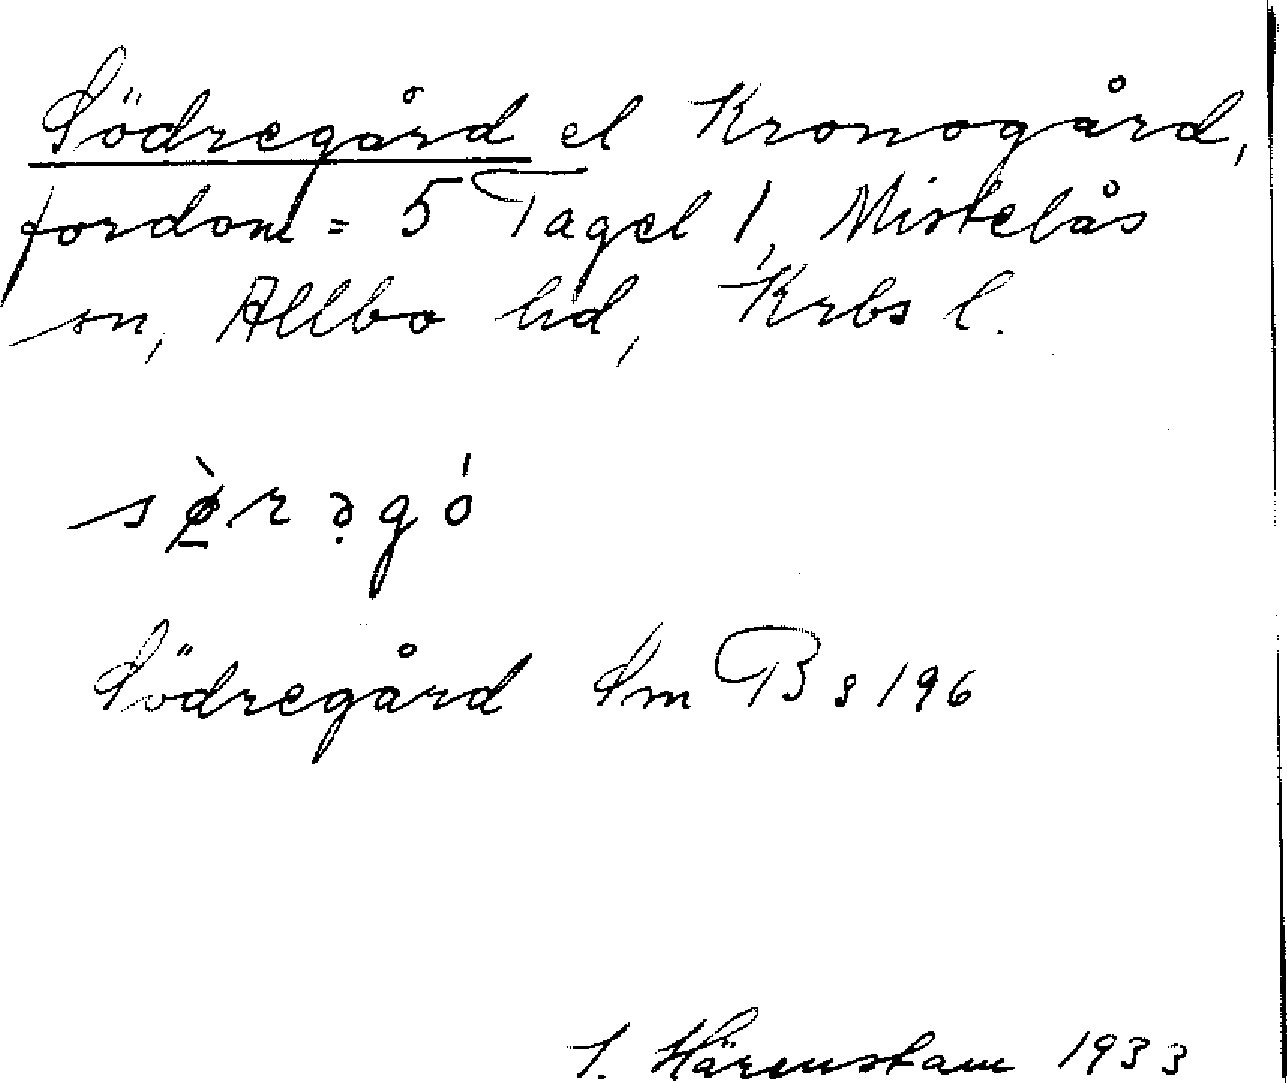 Södregård el Kronogård,
fordom = 5 Tagel 1, Mistelås
sn, Allbo hd, Krbs l.
sø̀rəgó
Södregård Sm B s 196
Härenstam 1933